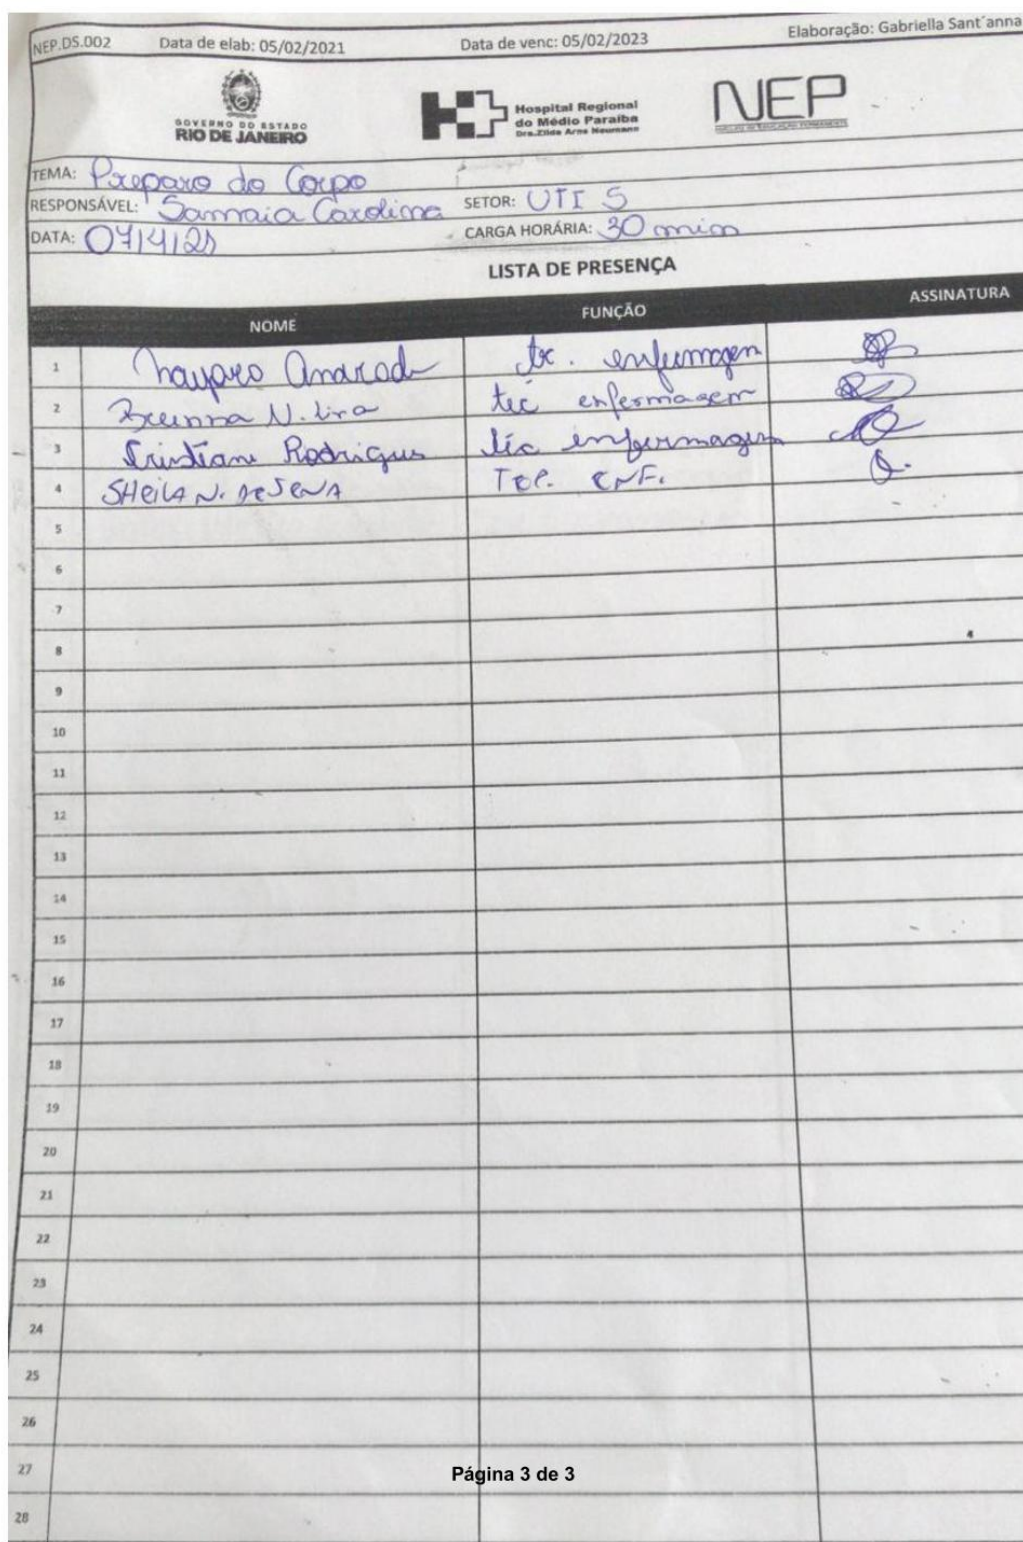 NEP.DS.002 Data de elab: 05/02/2021 Data de venc: 05/02/2023 Elaboração: Gabriella Sant´anna
GOVERNO DO ESTADO
RIO DE JANEIRO
Hospital Regional
do Médio Paraíba
Dra.Zilda Arns Neumann
NEP
NÚCLEO DE EDUCAÇÃO PERMANENTE
TEMA: Preparo do Corpo
RESPONSÁVEL: Samraia Carolina SETOR: UTI 5
DATA: 07/4/21 CARGA HORÁRIA: 30 min
LISTA DE PRESENÇA
NOME FUNÇÃO ASSINATURA
1 Nayara Andrade tc. enfermagem
2 Brenna N. Lira tec enfermagem
3 Cristiane Rodrigues téc enfermagem
4 SHEILA N. DE SENA TEC. ENF.
5
6
7
8
9
10
11
12
13
14
15
16
17
18
19
20
21
22
23
24
25
26
27 Página 3 de 3
28